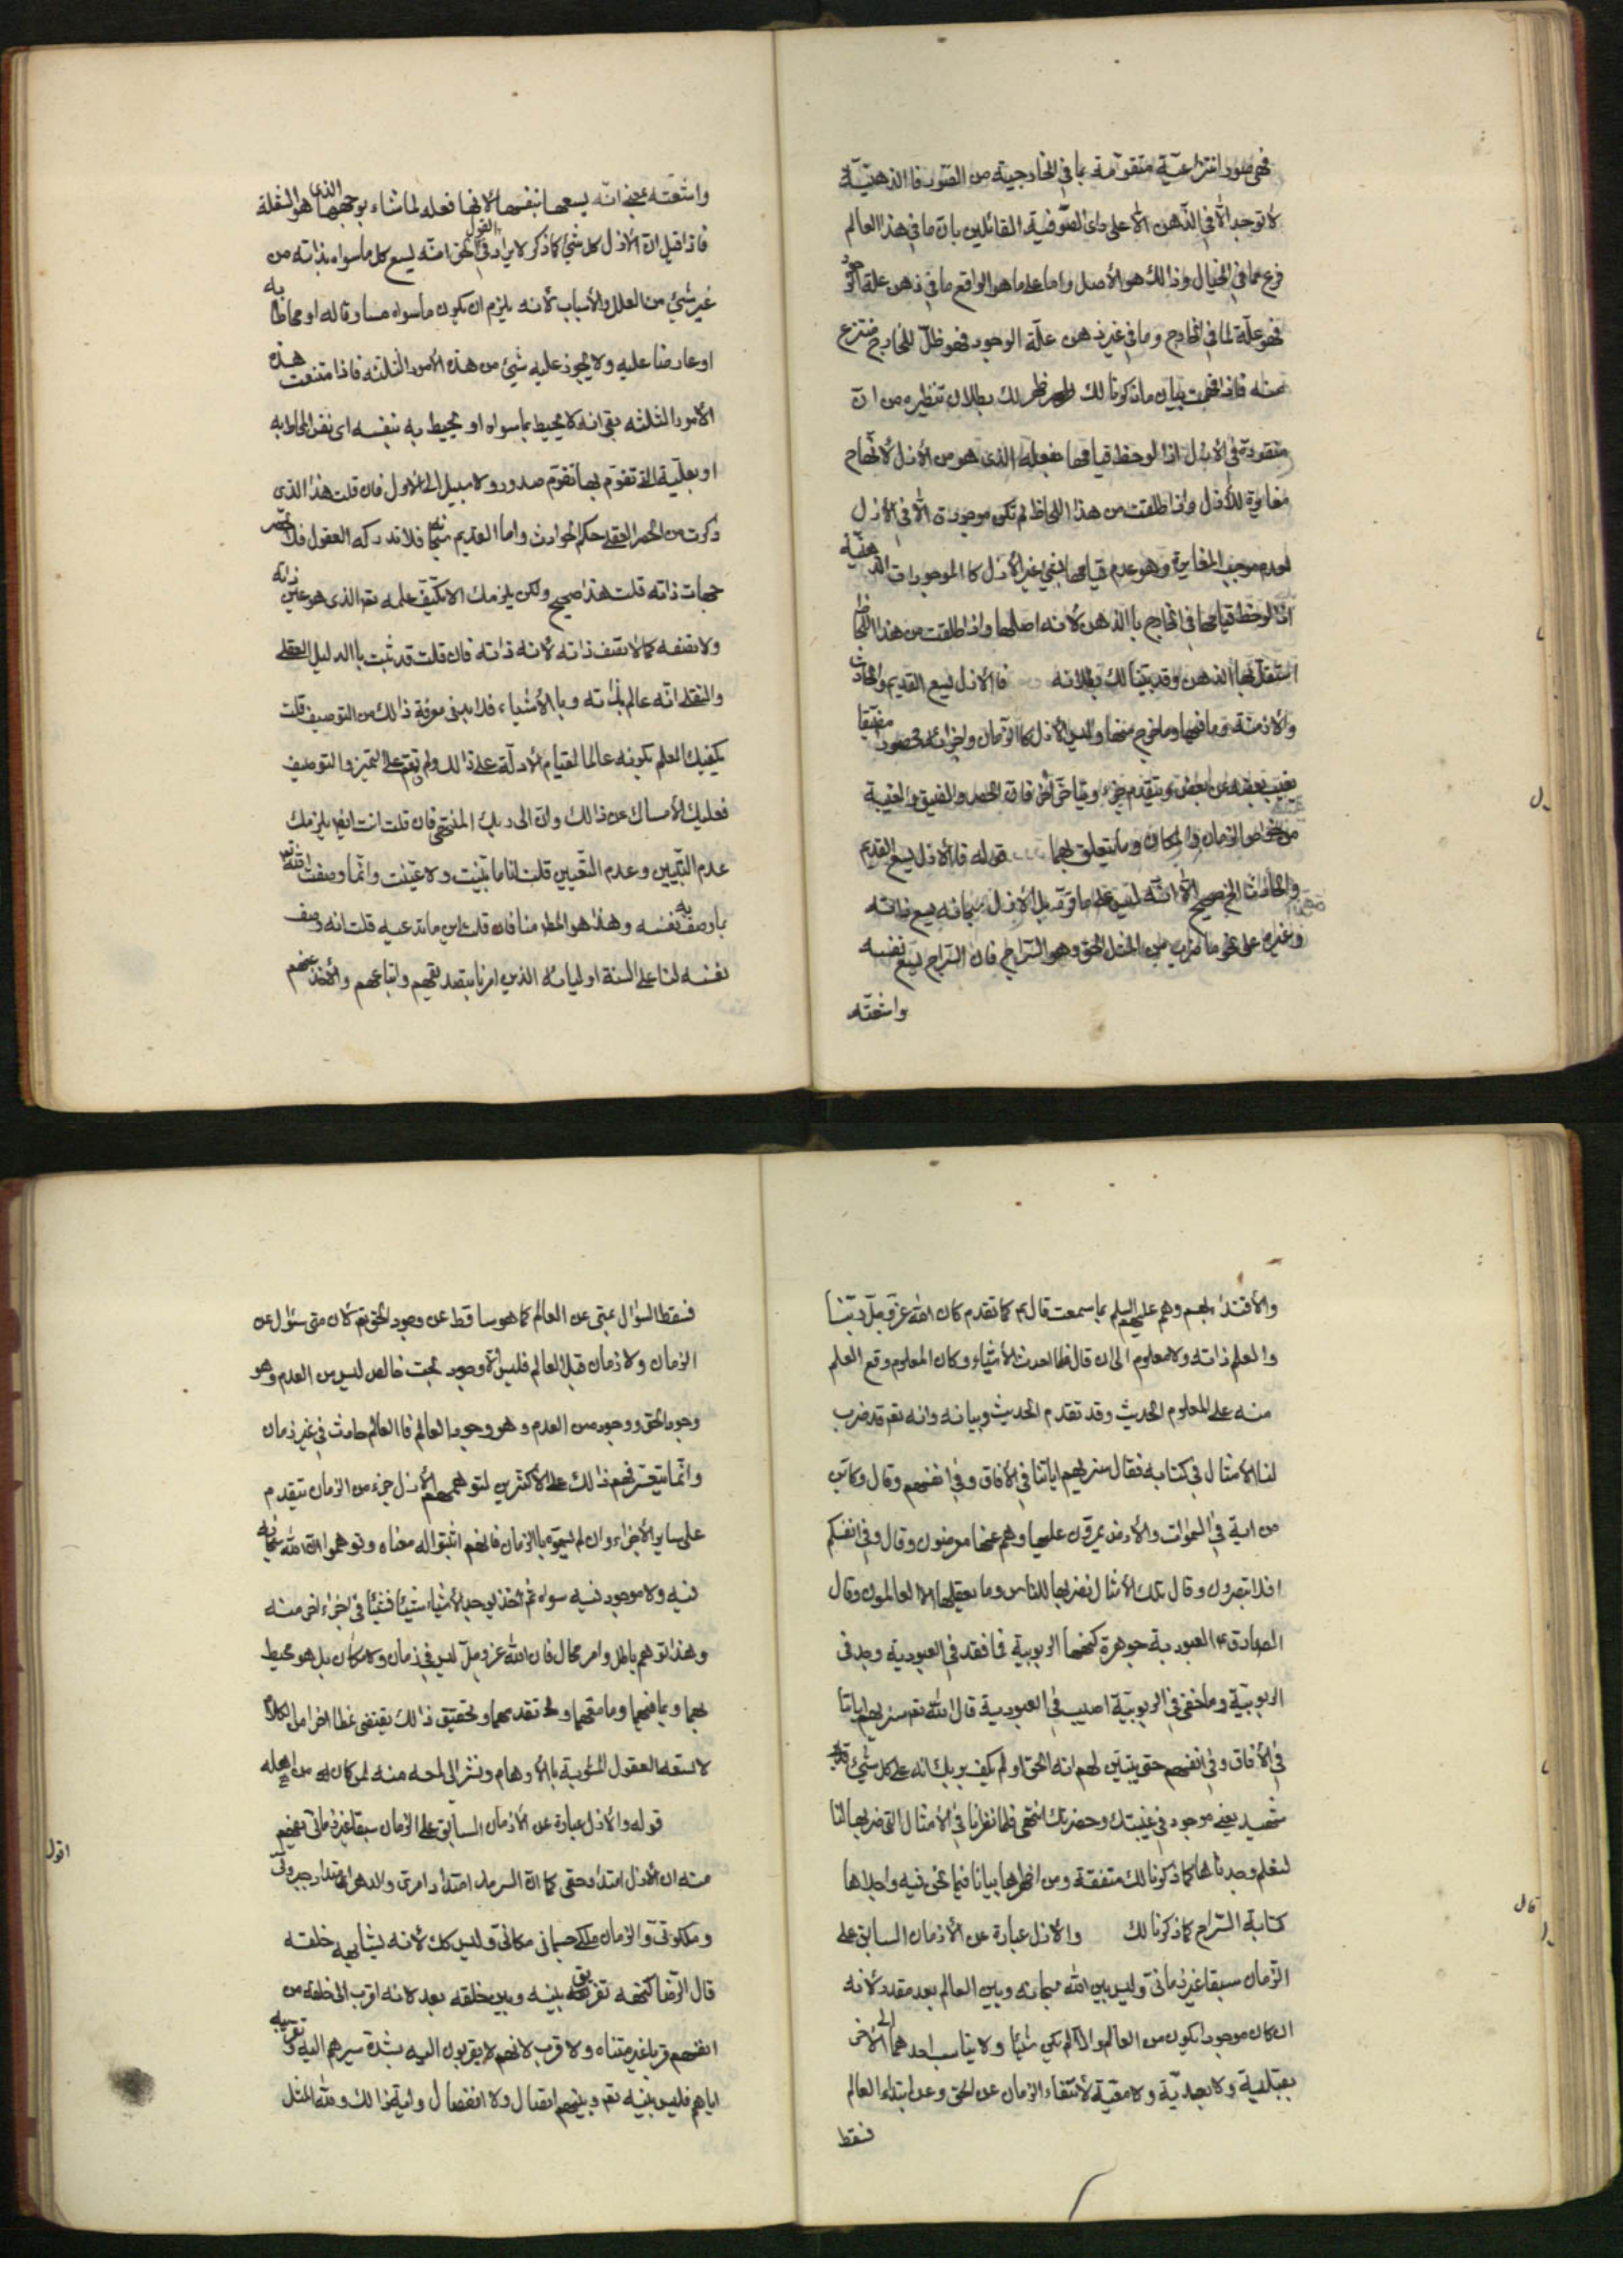 فهى صور انتزاعية متقومة بما فى الخارجية من الصور فالذهنية
لا توجد الا فى الذهن الا على راى الصوفية القائلين بان ما فى هذا العالم
فرع عما فى الخيال وذالك هو الأصل واما على ما هو الواقع ما فى ذهن علة الوجود
فهو علة لما فى الخارج وما فى غير ذهن علة الوجود فهو ظل للخارج منتزع
منه فاذا فهمت بيان ما ذكرنا لك ظهر لك بطلان تنظيره من ان
فى الأزل اذا لوحظ قيامها بفعله الذى هو من الأزل لأنها
مغايرة للأزل واذا طلقت من هذا اللحاظ لم تكن موجودة الا فى الأزل
لعدم موجب المغايرة وهو عدم قيامها بشئ غير الأزل كالموجودات الذهنية
اذا لوحظ قيامها فى الخارج باالذهن لأنه اصلها واذا طلقت من هذا اللحاظ
استقل بها الذهن وقد بينا لك بطلانه فاالأزل يسع القديم والحادث
والأزمنة وما فيها وما خرج منها وليس الأزل كاالزمان واجزائه محصورا مضيقا
يغيب بعضه عن بعض ويتقدم جزء ويتاخر اخر فان الحصر والضيق والغيبة
من خواص الزمان والمكان وما يتعلق بهما قوله فاالأزل يسع القديم
والحادث الخ صحيح الا انه ليس على ما توهمه بل الأزل سبحانه يسع ذاته
وغيره على نحو ما ضرب من المثل الحق وهو السراج فان السراج يسع نفسه
واشعته
واشعته بمعنى انه يسعها بنفسها لأنها فعله لما شاء بوجهها الذى هو الشعلة
فاذا قيل ان الأزل كل شئ كما ذكر لا يراد فى القول الحق انه يسع كل ما سواه بذاته من
غير شئ من العلل والأسباب لأنه يلزم ان يكون ما سواه مساوقا له او محاطا به
او عارضا عليه ولا يجوز عليه شئ من هذه الأمور الثلثه فاذا امتنعت هذه
الأمور الثلثه بقى انه لا يحيط بما سواه او يحيط به بنفسه اى نفس المحاط به
او بعليته التى تقوم بها تقوم صدور ولا سبيل الى الأول فان قلت هذا الذى
ذكرت من الحصر العقلى حكم الحوادث واما القديم سبحانه فلا تدركه العقول فلا تحصر
جهات ذاته قلت هذا صحيح ولكن يلزمك الا تكيف علمه تع الذى هو عين ذاته
ولا تصفه كما لا تصف ذاته لأنه ذاته فان قلت قد ثبت باالدليل العقلى
والنقلى انه عالم بذاته وباالأشياء فلا بد فى معرفة ذالك من التوصيف قلت
يكفيك العلم بكونه عالما لقيام الأدلة على ذالك ولم تقم على التميز والتوصيف
فعليك الأمساك عن ذالك وان الى ربك المنتهى فان قلت انت ايضا يلزمك
عدم التبيين وعدم التعيين قلت انا ما بينت ولا عينت وانما وصفت الله
بما وصف به نفسه وهذا هو المطلوب منا فان قلت اين ما تدعيه قلت انه وصف
نفسه لنا على السنة اوليائه الذين امرنا بتصديقهم واتباعهم والأخذ عنهم
والأقتداء بهم وهم عليهم السلم بما سمعت قال ع كما تقدم كان الله عز وجل ربنا
والعلم ذاته ولا معلوم الى ان قال فلما احدث الأشياء وكان المعلوم وقع العلم
منه على المعلوم الحديث وقد تقدم الحديث وبيانه وانه تع قد ضرب
لنا الأمثال فى كتابه فقال سنريهم اياتنا فى الأفاق وفى انفسهم وقال وكاين
من اية فى السموات والأرض يمرون عليها وهم عنها معرضون وقال وفى انفسكم
افلا تبصرون وقال تلك الأمثال نضربها للناس وما يعقلها الا العالمون وقال
الصادق ع العبودية جوهرة كنهها الربوبية فما فقد فى العبودية وجد فى
الربوبية وما خفى فى الربوبية اصيب فى العبودية قال الله تع سنريهم اياتنا
فى الأفاق وفى انفسهم حتى يتبين لهم انه الحق او لم يكف بربك انه على كل شئ
شهيد يعنى موجود فى غيبتك وحضرتك انتهى فلما نظرنا فى الأمثال التى ضربها لنا
لنعلم وجدناها كما ذكرنا لك متفقة ومن اظهرها بيانا فيما نحن فيه واجلاها
كتابة السراج كما ذكرنا لك والأزل عبارة عن الأزمان السابق على
قال
الزمان سبقا غير زمانى وليس بين الله سبحانه وبين العالم بعد مقدر لأنه
ان كان موجودا يكون من العالم والا لم يكن شيئا ولا يناسب احدهما الى الأخر
بقبلية ولا بعدية ولا معية لأنتفاء الزمان عن الحق وعن ابتداء العالم
فسقط
فسقط السؤال بمتى عن العالم كما هو ساقط عن وجود الحق تع لأن متى سؤال عن
الزمان ولا زمان قبل العالم فليس الا وجود بحت خالص ليس من العدم وهو
وجود الحق ووجود من العدم وهو وجود العالم فاالعالم حادث فى غير زمان
وانما يتعسر فهم ذالك على الأكثرين لتوهمهم الأزل جزء من الزمان يتقدم
على ساير الأجزاء وان لم يسموه باالزمان فانهم اثبتوا له معناه وتوهموا ان الله سبحانه
فيه ولا موجود فيه سواه ثم اخذ يوجد الأشياء شيئا فشيئا فى اجزاء اخر منه
وهذا توهم باطل وامر محال فان الله عز وجل ليس فى زمان ولا مكان بل هو محيط
بهما وبما فيهما وما معهما وما تقدمهما وتحقيق ذالك يقتضى نمطا اخر من الكلام
لا تسعه العقول المشوبة باالأوهام ونشير الى لمحة منه لمن كان من اهله
اقول
قوله والأزل عبارة عن الأزمان السابق على الزمان سبقا غير زمانى يفهم
منه ان الأزل امتداد حقى كما ان السرمد امتداد امرى والدهر امتداد جبروتى
وملكوتى والزمان ملكى جسمانى مكانى وليس كك لأنه لا يشابهه خلقه
قال الرضا كنهه تفريق بينه وبين خلقه بعد لانه اقرب الى خلقه من
انفسهم قربا غير متناه ولا قرب لانهم لا يقربون اليه بشدة سيرهم اليه وتقريبه
اياهم فليس بينه تع وبينهم اتصال ولا انفصال واية ذالك ولله المثل